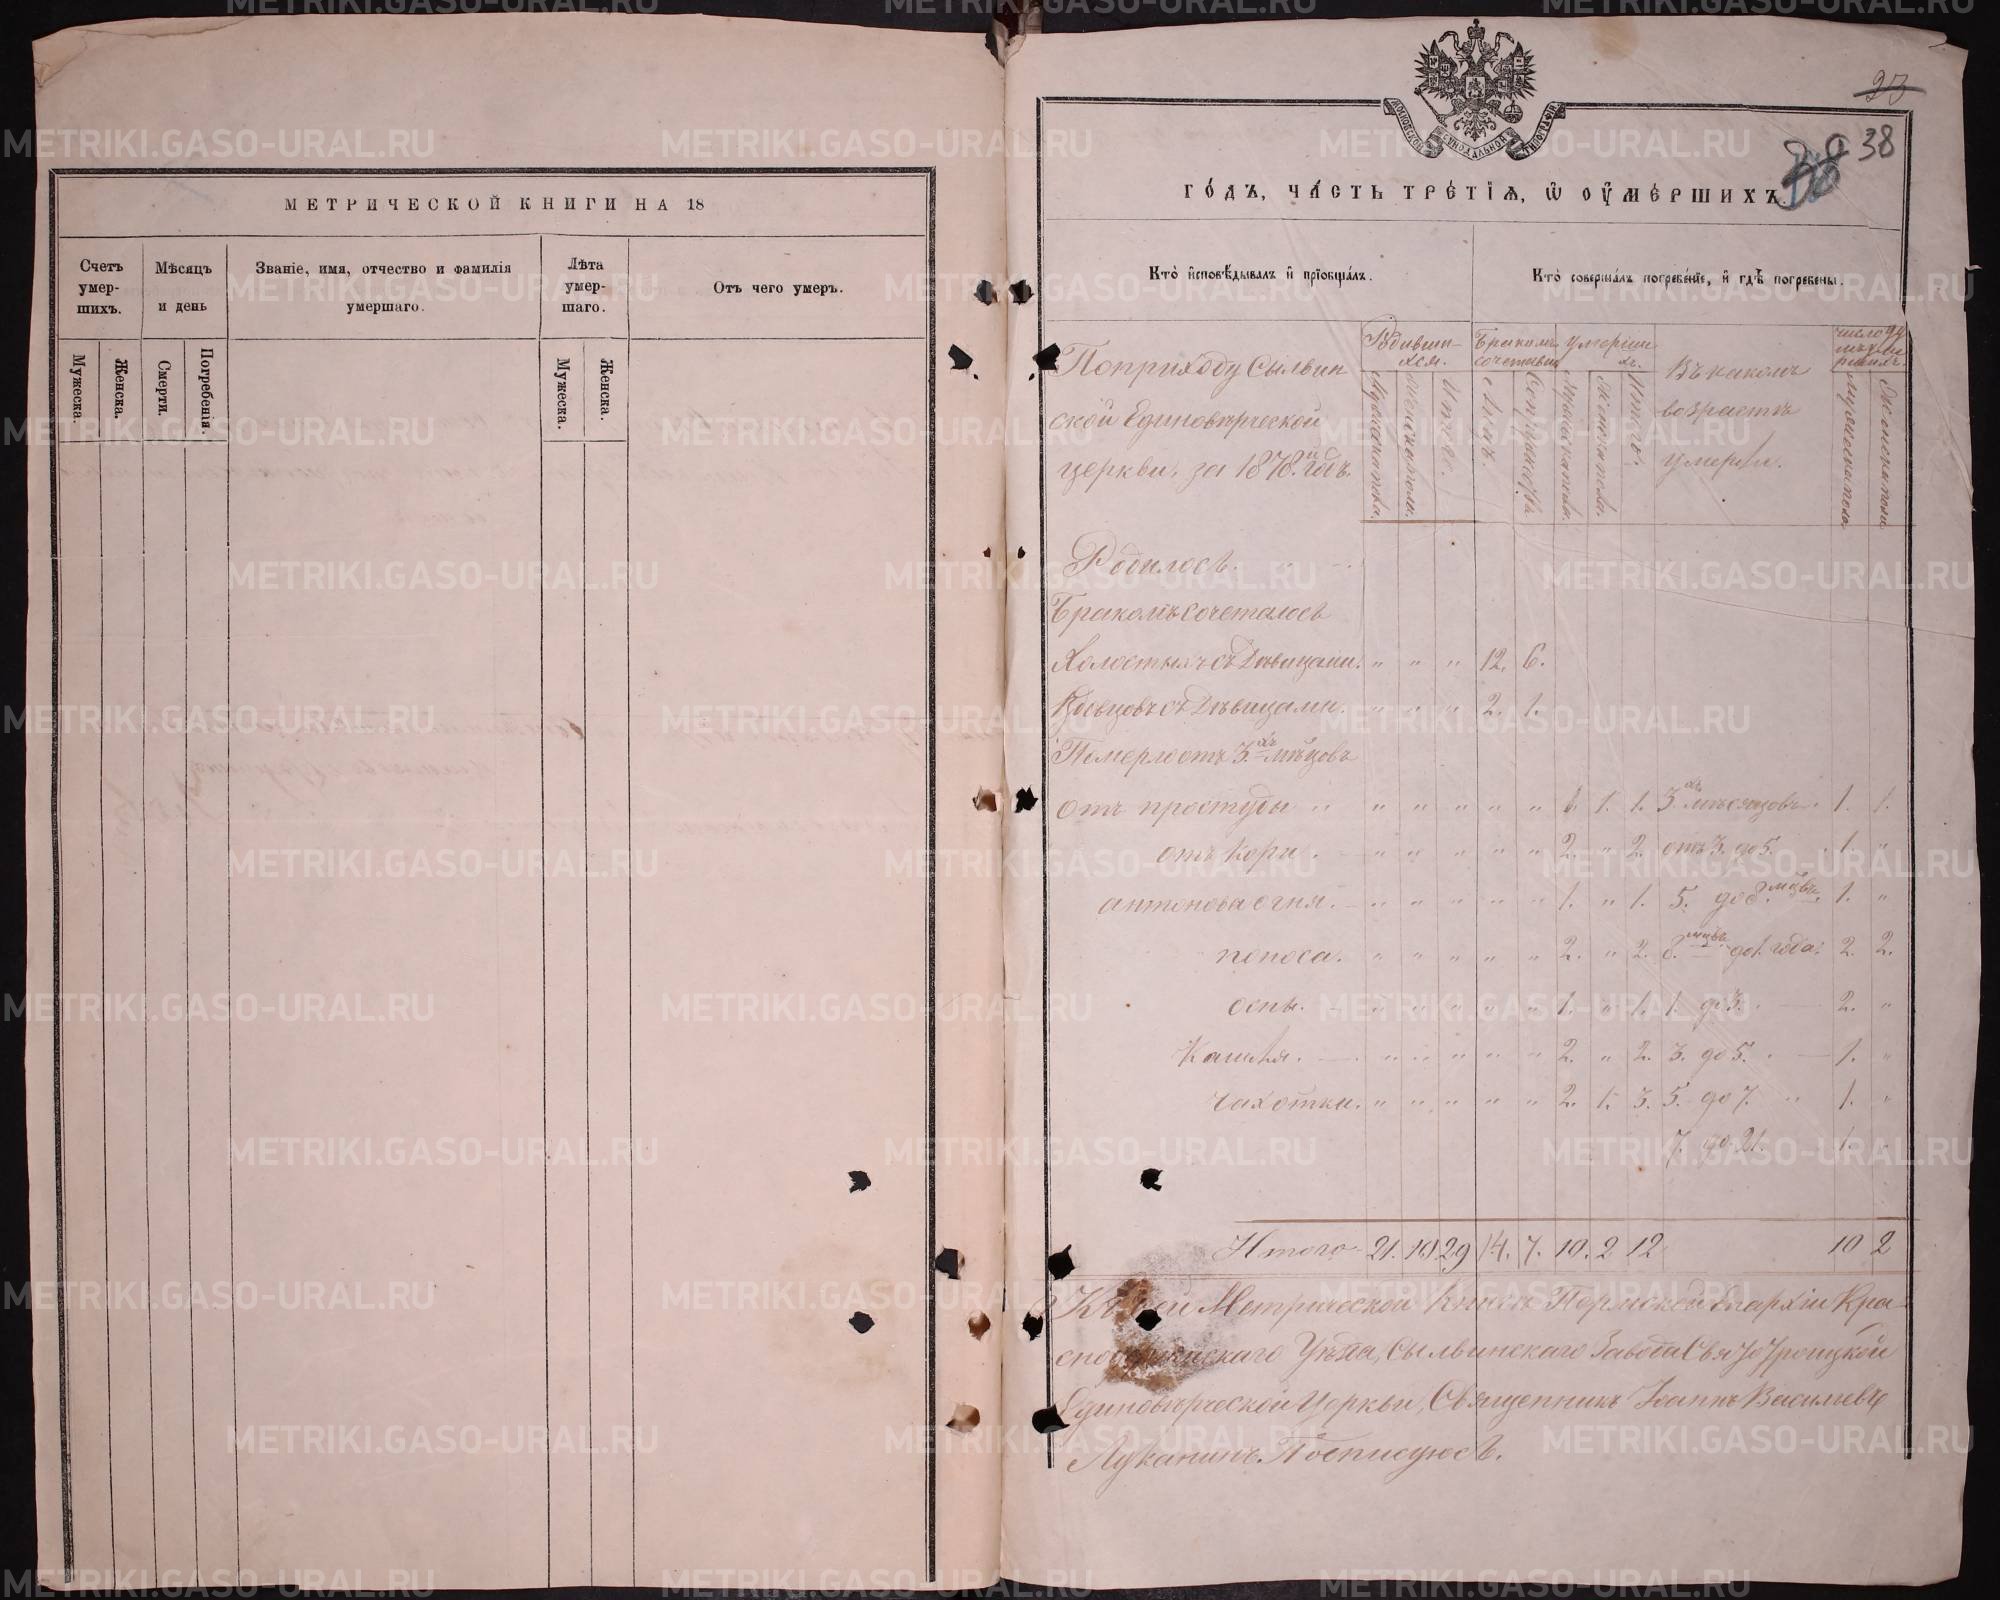 МЕТРИЧЕСКОЙ КНИГИ НА 18
Счетъ умер-шихъ.
Мѣсяцъ и день
Званіе, имя, отчество и фамилія умершаго.
Лѣта умер-шаго.
Отъ чего умеръ.
Мужеска.
Женска.
Смерти.
Погребенія.
Мужеска.
Женска.
23
38
МОСКОВСКОЙ СѴНОДАЛЬНОЙ ТИПОГРАФІИ
ГО́ДЪ, ЧА́СТЬ ТРЕ́ТІѦ, Ѡ ОУ҆МЕ́РШИХЪ.
Кто̀ и҆сповѣ́дывалъ и҆ прїобща́лъ.
Кто̀ соверша́лъ погребе́нїе, и҆ гдѣ̀ погребены.
По приходу Сылвин
ской Единовѣрческой
церкви, за 1878.й годъ.
Родивши-хся.
Бракомъ сочетавш
умерши хъ.
Въ какомъ возрастѣ умерли.
Мужеска пола.
Женска пола.
Итого.
Лицъ.
Супружествъ
Мужеска пола.
Женска пола.
Итого.
Мужеска пола
Женска пола
Родилось.
Бракомъ сочеталось
Холостыхъ съ Дѣвицами. " " " 12. 6.
Вдовцовъ съ Дѣвицами. " " " 2. 1.
Померло отъ 3.хъ мѣсцовъ
отъ простуды " " " " " " 1. 1. 3.хъ мѣсяцовъ. 1. 1.
отъ Кори. " " " " " 2. " 2. отъ 3. до 5. 1. "
антонова огня. " " " " " 1. " 1. 5. до 8. мцвъ. 1. "
поноса. " " " " " 2. " 2. 8. мцвъ. до 1. года. 2. 2.
оспы. " " " " " 1. " 1. 1. до 3. 2. "
Кашля. " " " " " 2. " 2. 3. до 5. 1. "
чахотки. " " " " " 2. 1. 3. 5. до 7. " 1. "
7. до 21. 1. "
Итого 21. 10 29 14. 7. 10. 2 12 10 2
Къ сей Метрической Книгѣ Пермской Епархіи Кра-
сноуфимскаго Уѣзда, Сылвинскаго Завода Свято Троицкой
Единовѣрческой Церкви, Священникъ Іоаннъ Васильевъ
Луканинъ. Подписуюсь.
METRIKI.GASO-URAL.RU